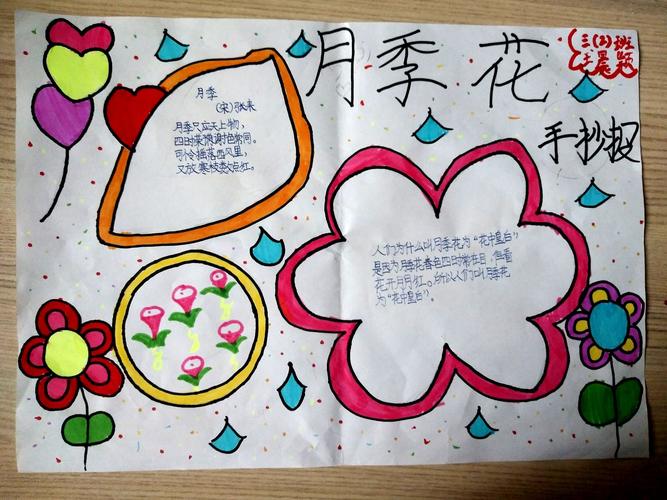 月季花
三(3)班
手抄报
月季
(宋)张耒
月季只应天上物,
四时荣谢色常同。
可令摇落西风里,
又放寒枝数点红。
人们为什么叫月季花为“花中皇后”
是因为月季花春色四时常在目,但看
花开月月红。所以人们叫月季花
为“花中皇后”。